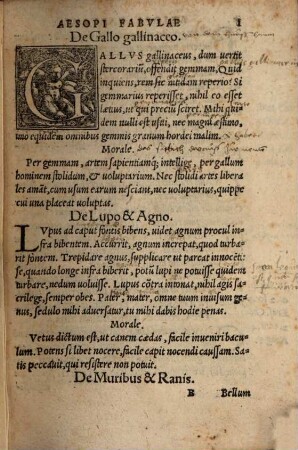 AESOPI FABVLAE 1
De Gallo gallinacco.
GALLVS gallinaceus, dum uertit
stercorariũ, offendit gemmam, Quid
inquiens, rem sic nitidam reperio? Si
gemmarius reperisset, nihil eo esset
lætius, ut qui preciũ sciret. Mihi quidem
nulli est usui, nec magni æstimo,
imo equidem omnibus gemmis granum hordei malim.
Morale.
Per gemmam, artem sapientiamq; intellige, per gallum
hominem stolidum, & uoluptarium. Nec stolidi artes libera
les amãt, cum usum earum nesciant, nec uoluptarius, quippe
cui una placeat uoluptas.
De Lupo & Agno.
LVpus ad caput fontis bibens, uidet agnum procul in
fra bibentem. Accurrit, agnum increpat, quod turba
rit fontem. Trepidare agnus, supplicare ut parcat innocẽti:
se, quando longe infra biberit, potũ lupi ne potuisse quidem
turbare, nedum uoluisse. Lupus cõtra intonat, nihil agis sa
crilege, semper obes. Pater, mater, omne tuum inuisum ge
nus, sedulo mihi aduersatur, tu mihi dabis hodie penas.
Morale.
Vetus dictum est, ut canem cædas, facile inueniri bacu
lum. Potens si libet nocere, facile capit nocendi caussam. Sa
tis peccauit, qui resistere non potuit.
De Muribus & Ranis.
B Bellum